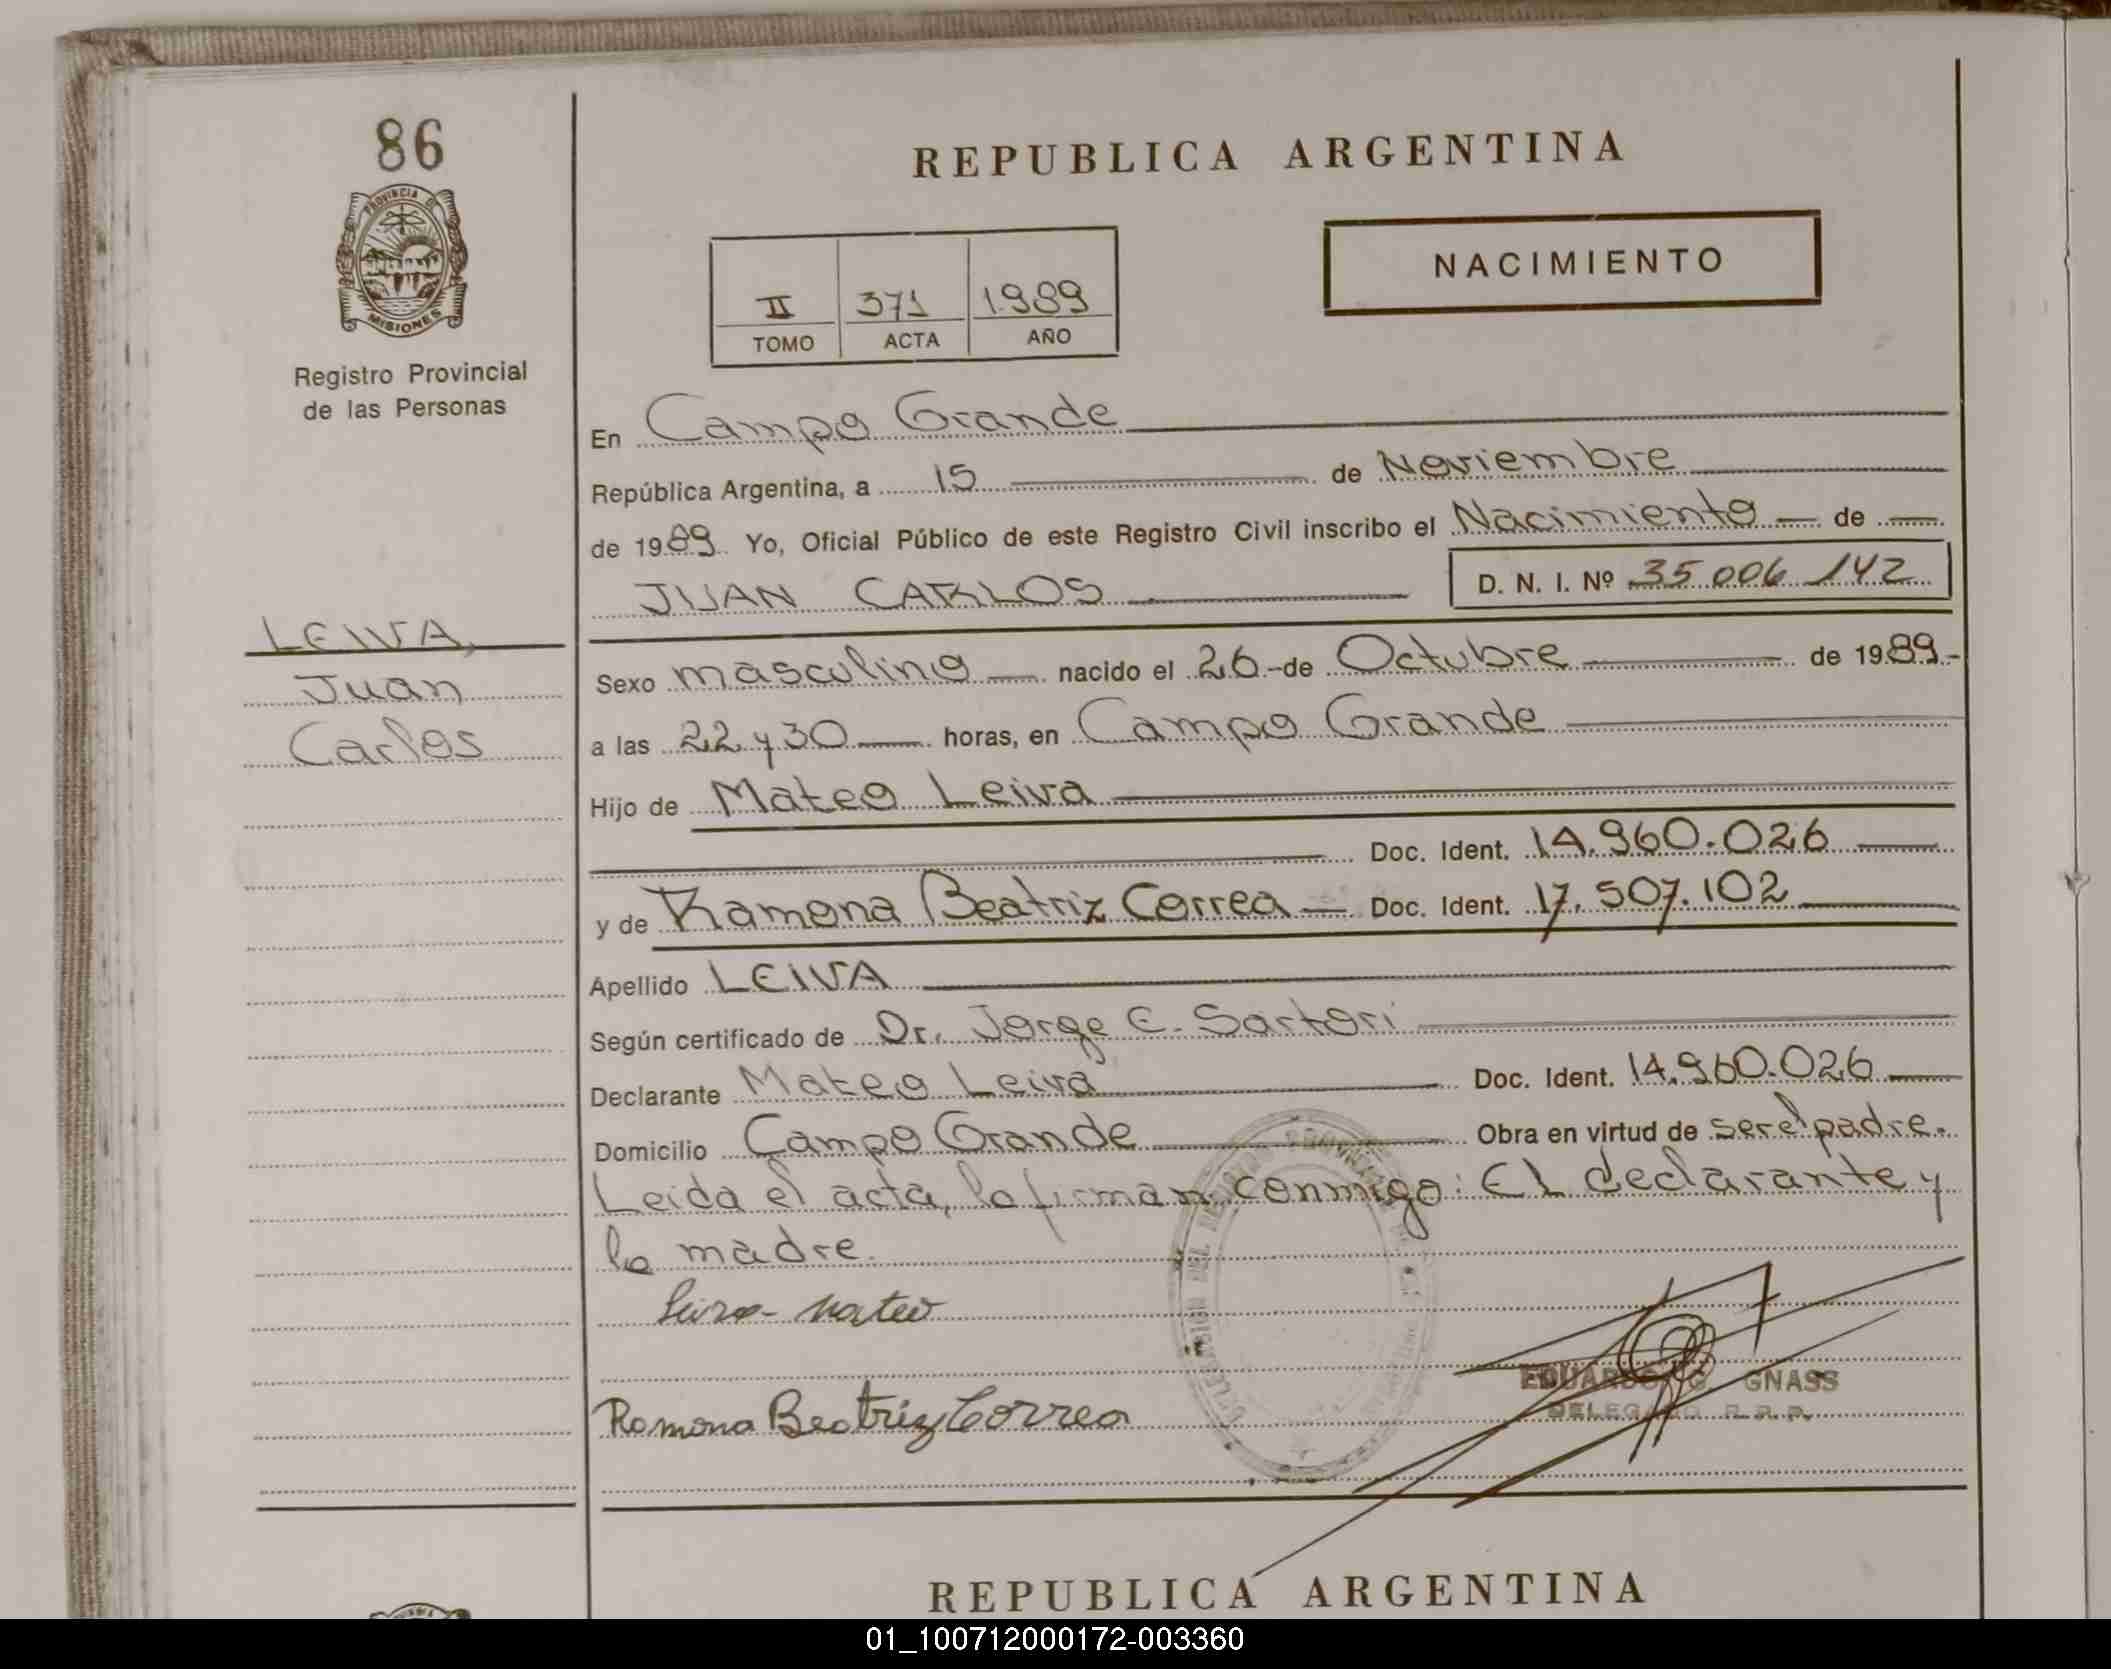 86
PROVINCIA DE
MISIONES
Registro Provincial
de las Personas
LEIVA,
Juan
Carlos
REPUBLICA ARGENTINA
NACIMIENTO
II 371 1989
TOMO ACTA AÑO
En Campo Grande
República Argentina, a 15 de Noviembre
de 1989 Yo, Oficial Público de este Registro Civil inscribo el Nacimiento de
JUAN CARLOS D. N. I. Nº 35 006 142
Sexo masculino nacido el 26 de Octubre de 1989
a las 22 y 30 horas, en Campo Grande
Hijo de Mateo Leiva
Doc. Ident. 14.960.026
y de Ramona Beatriz Correa Doc. Ident. 17.507.102
Apellido LEIVA
Según certificado de Dr. Jorge E. Sartori
Declarante Mateo Leiva Doc. Ident. 14.960.026
Domicilio Campo Grande Obra en virtud de ser el padre.
Leida el acta, la firman conmigo: El declarante y
la madre.
Leiva - Mateo
EDUARDO G. GNASS
DELEGADO R.P.P.
Ramona Beatriz Correa
REPUBLICA ARGENTINA
01_100712000172-003360